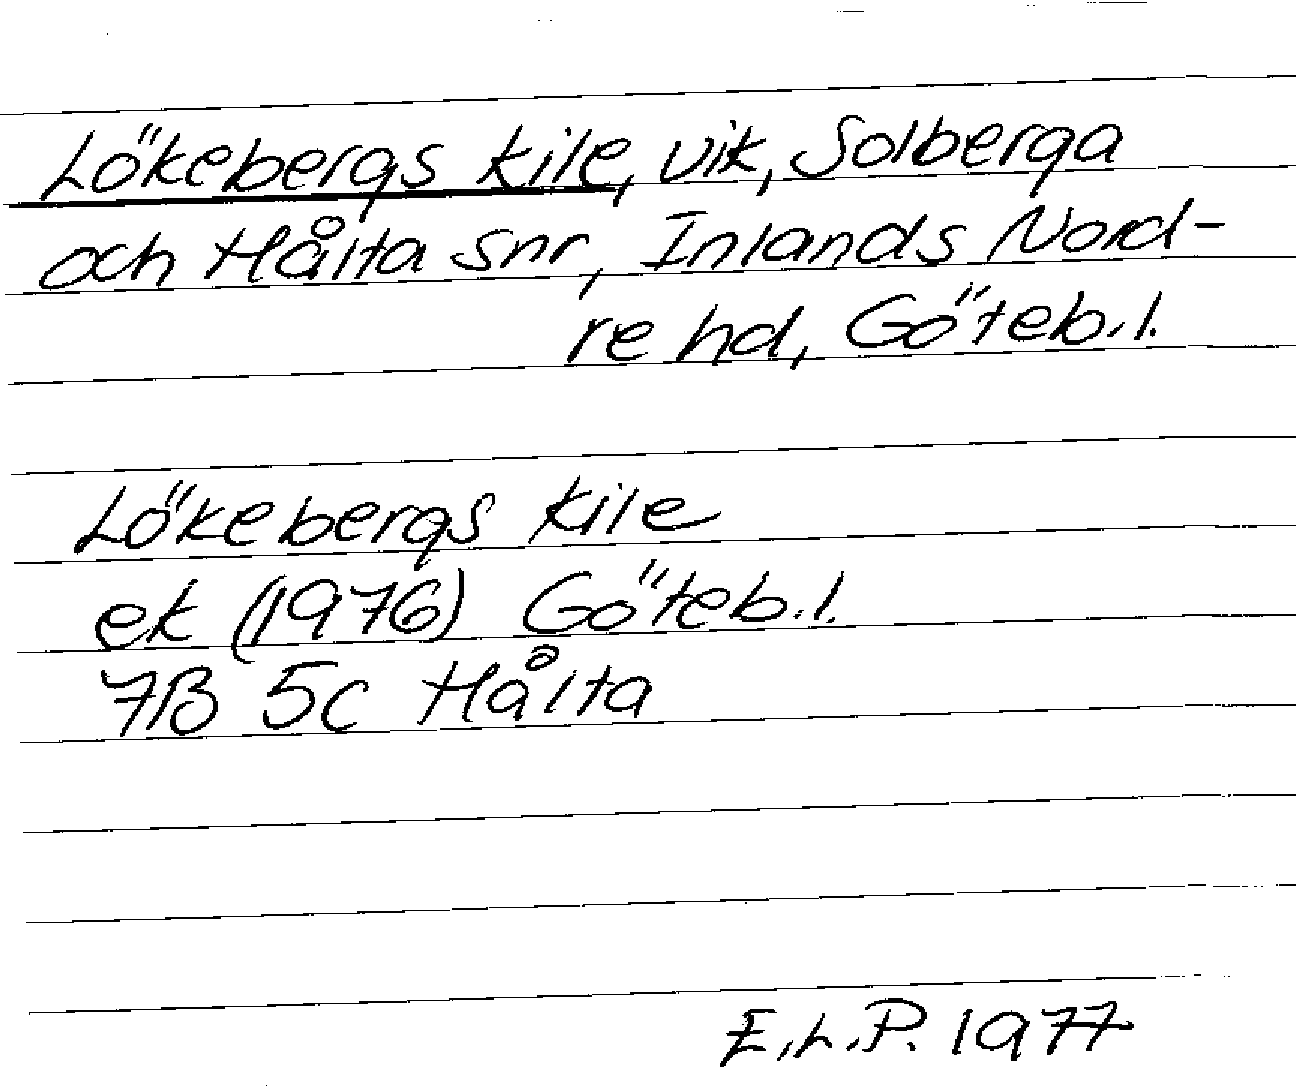 Lökebergs kile, vik, Solberga
och Hålta snr, Inlands Nord-
re hd, Göteb.l.
Lökebergs kile
ek (1976) Göteb.l.
7B 5c Hålta
E.L.P. 1977